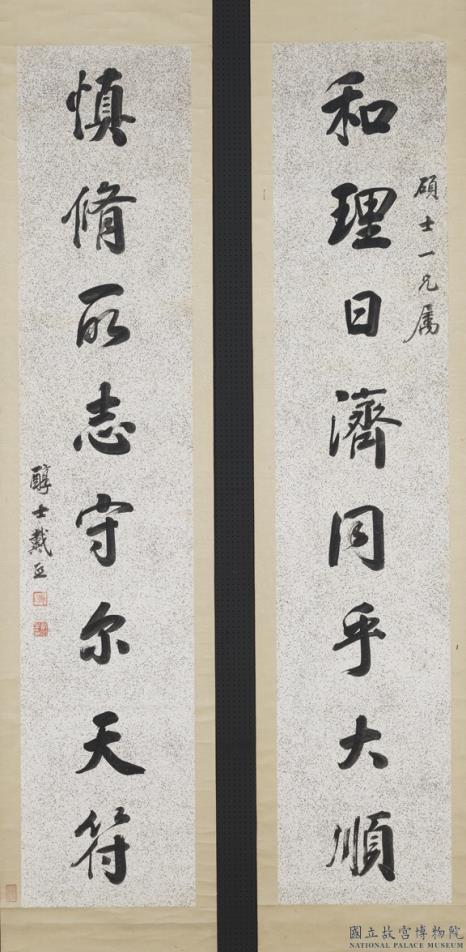 碩士一兄属
和理日濟同乎大順
慎脩所志守尔天符
醇士戴熙
國立故宮博物院
NATIONAL PALACE MUSEUM